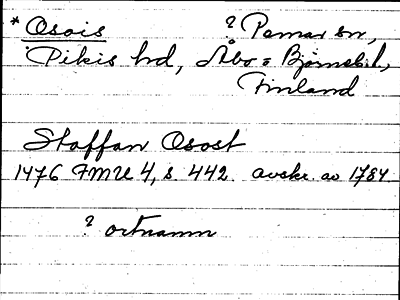 * Osois ? Pemar sn,
Pikis hd, Åbo o Björneb. l,
Finland
Staffan Osost
1476 FMU 4, s. 442. avskr. av 1784
? ortnamn